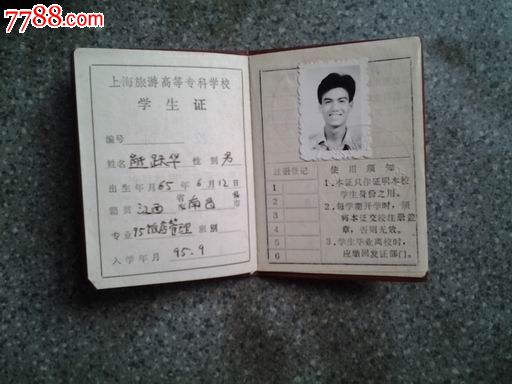 7788.com
上海旅游高等专科学校
学生证
编号
姓名 跃华 性别 男
出生年月65年6月12日
籍贯 江西 省 南昌 市
专业 95饭店管理 班别
入学年月 95.9
注册登记
1
2
3
4
5
6
使用须知
1、本证只作证明本校
学生身份之用。
2、每学期开学时，须
将本证交校注册盖
章，否则无效。
3、学生毕业离校时，
应缴回发证部门。
7788.com